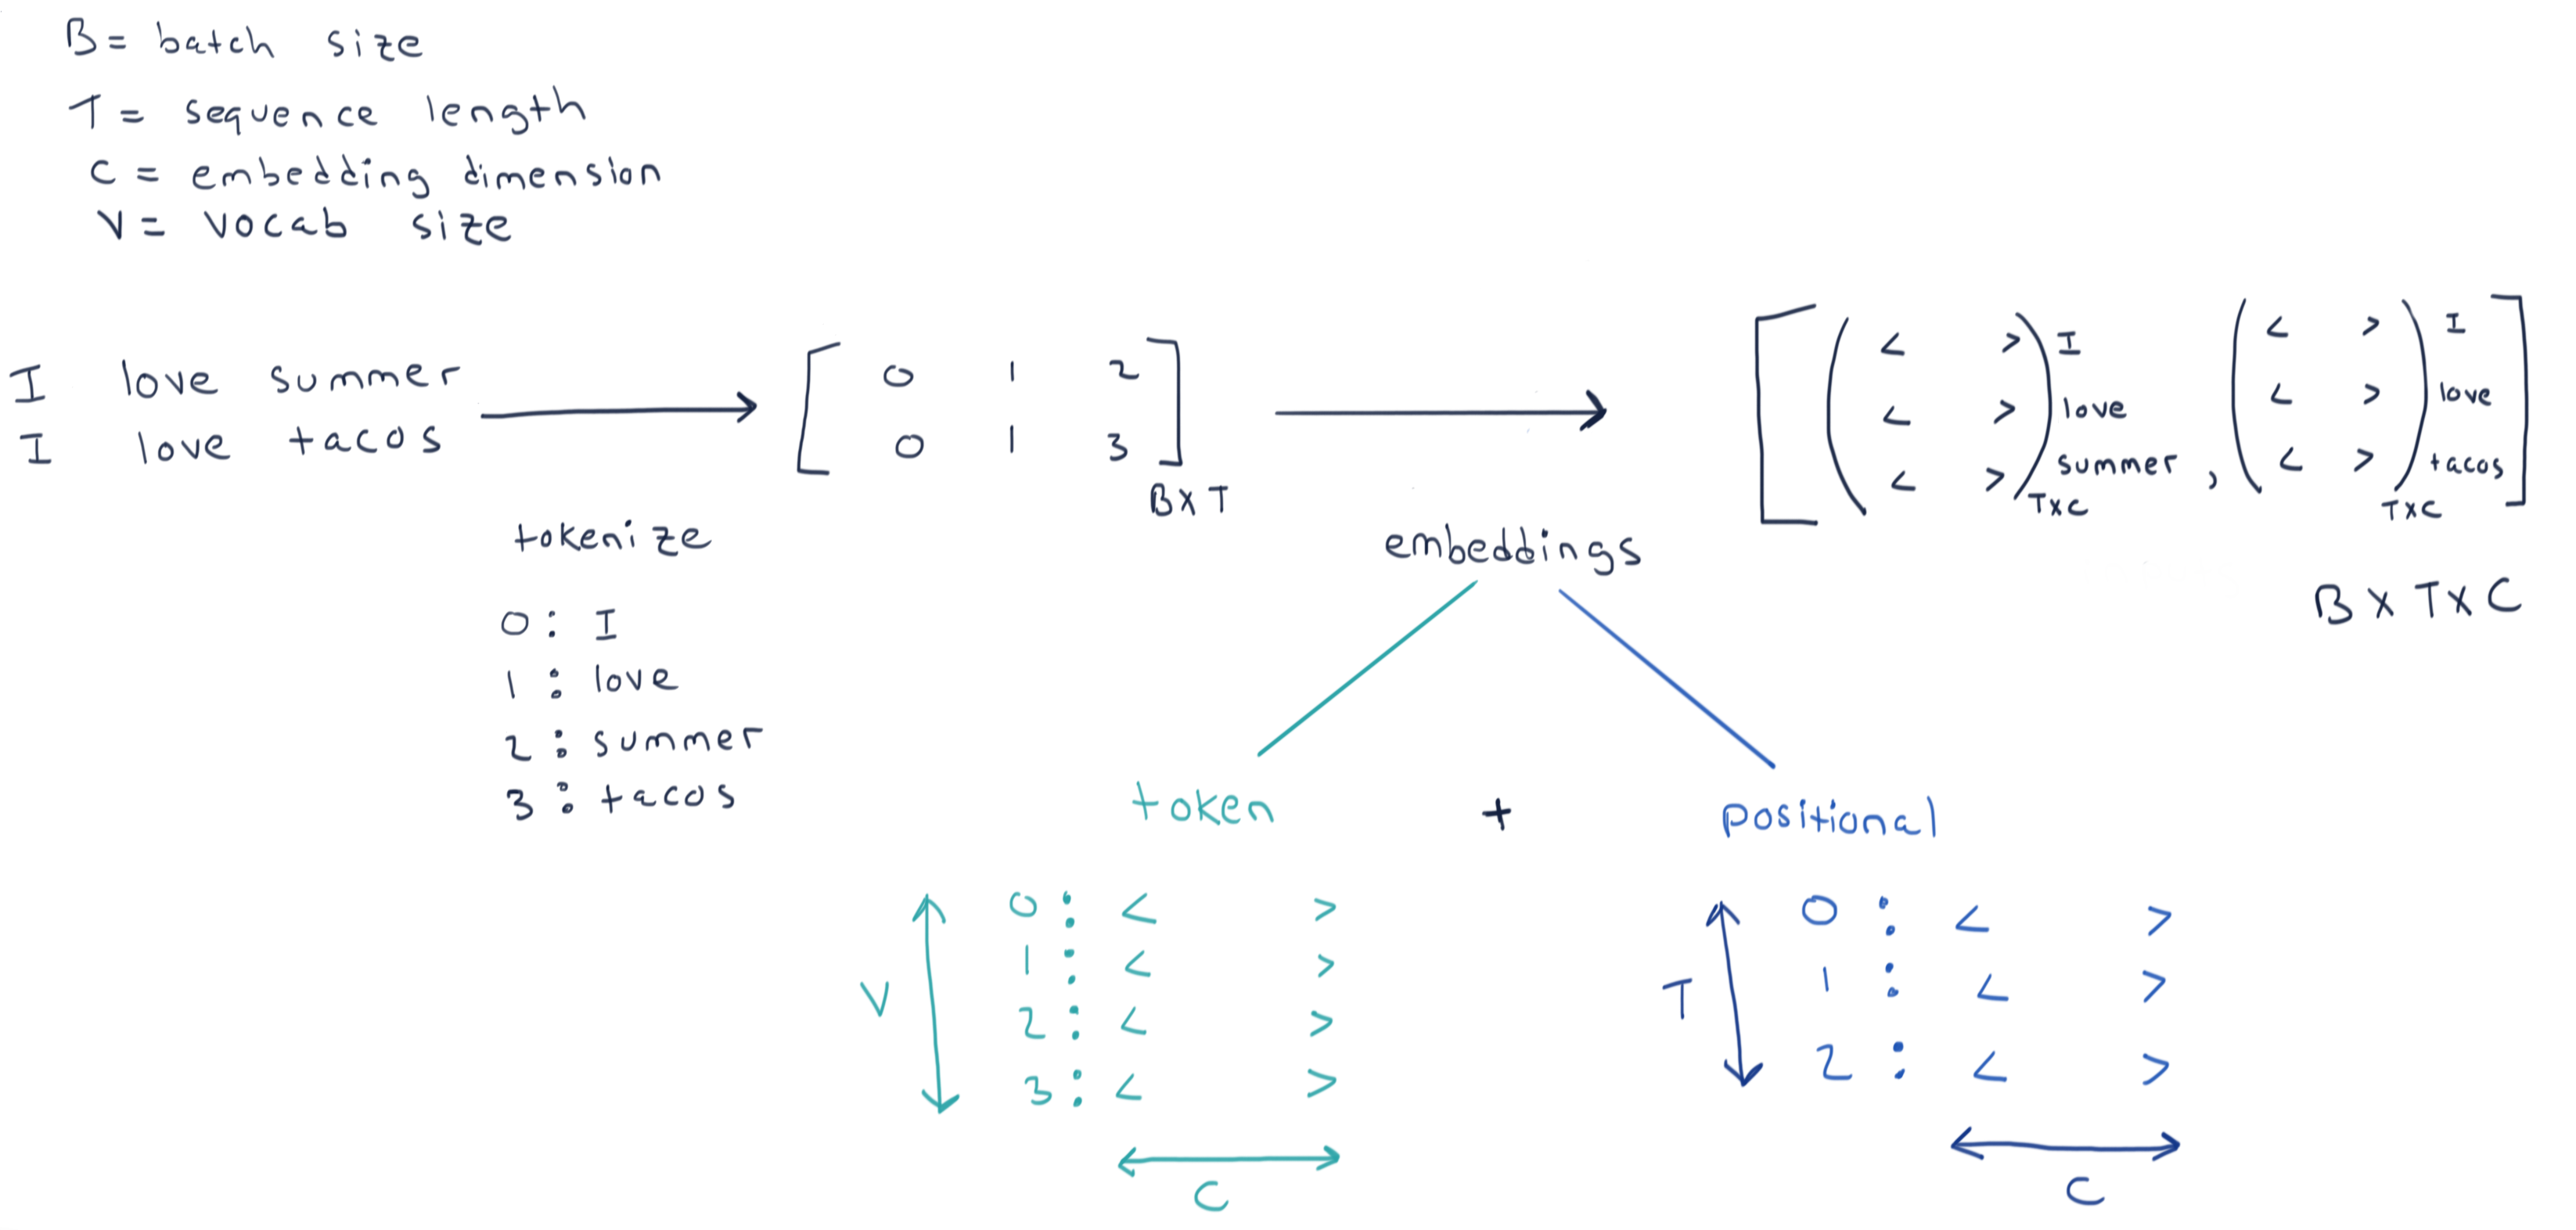 B = batch size
T = sequence length
C = embedding dimension
V = vocab size
I love summer
I love tacos
[ 0 1 2
0 1 3 ]
B X T
tokenize
0 : I
1 : love
2 : summer
3 : tacos
embeddings
[ ( < > ) I
< > love
< > summer
TXC
,
( < > ) I ]
< > love
< > tacos
TXC
B X T X C
token + positional
V
0 : < >
1 : < >
2 : < >
3 : < >
C
T
0 : < >
1 : < >
2 : < >
C